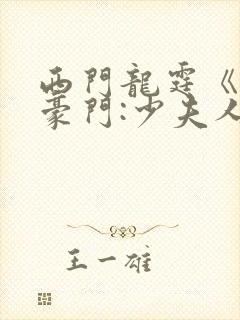 西門龍霆《
豪門:少夫人
王一雄